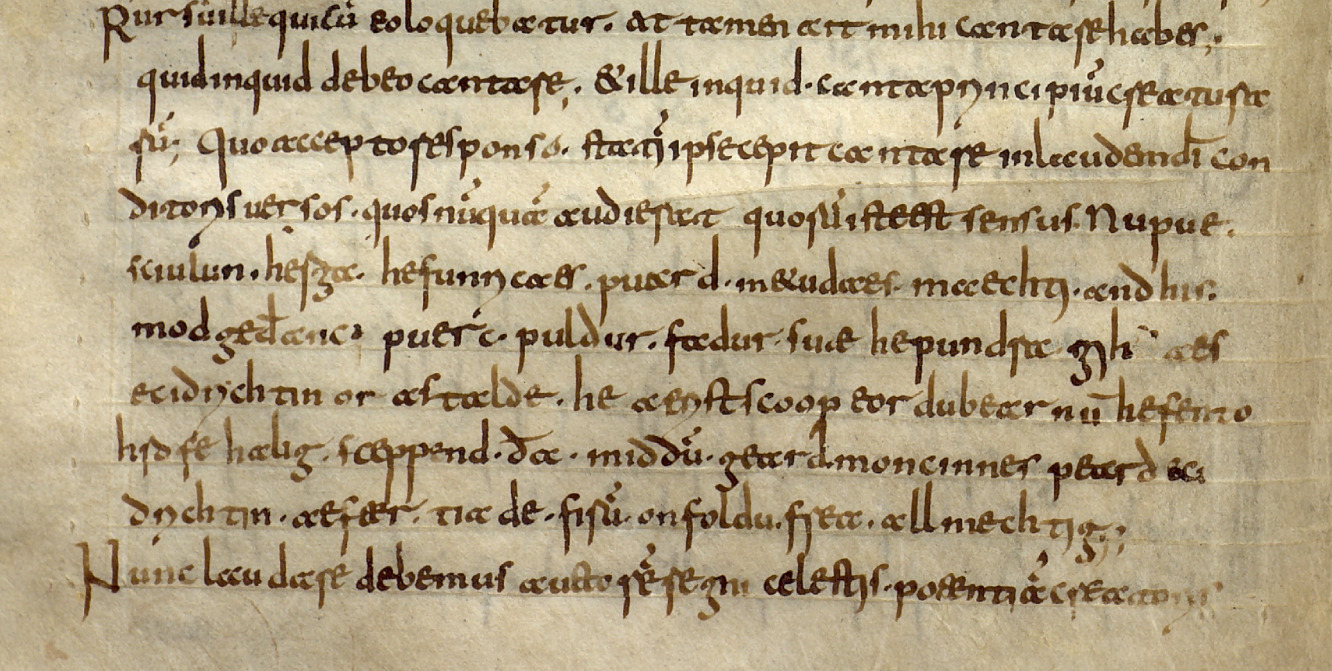 Rursū ille qui cū eo loquebatur. at tamen ait mihi cantare habes;
quid inquid debeo cantare. & ille inquid. canta principiū creatura
rū; Quo accepto responso. statī ipse cepit cantare in laudem dī con
ditoris versos. quos nūquā audierat quorū iste est sensus. Nu pue.
sciulun. herga. hefunricaes. puard. metudaes. maecti. and his.
mod gedanc. puerc. puldur. fadur. sue he pundra. gih aes
eci drychtin or astalde. he aerist scoop eordu bear nū hefen to
hrofe halig. sceppend. đa. middū. geard moncinnes peard eci
drychtin. aefter. tiade. firū. on foldu. frea. allmechtig;
Nunc laudare debemus auctorē regni celestis. potentiā creatoris